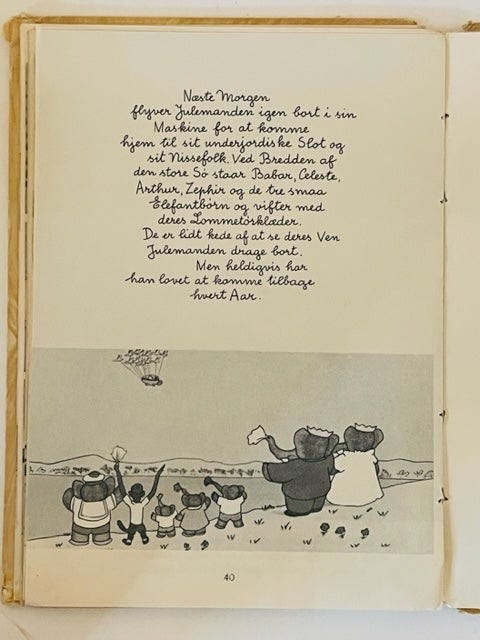 Næste Morgen
flyver Julemanden igen bort i sin
Maskine for at komme
hjem til sit underjordiske Slot og
sit Nissefolk. Ved Bredden af
den store Sø staar Babar, Celeste,
Arthur, Zephir og de tre smaa
Elefantbørn og vifter med
deres Lommetørklæder.
De er lidt kede af at se deres Ven
Julemanden drage bort.
Men heldigvis har
han lovet at komme tilbage
hvert Aar.
40